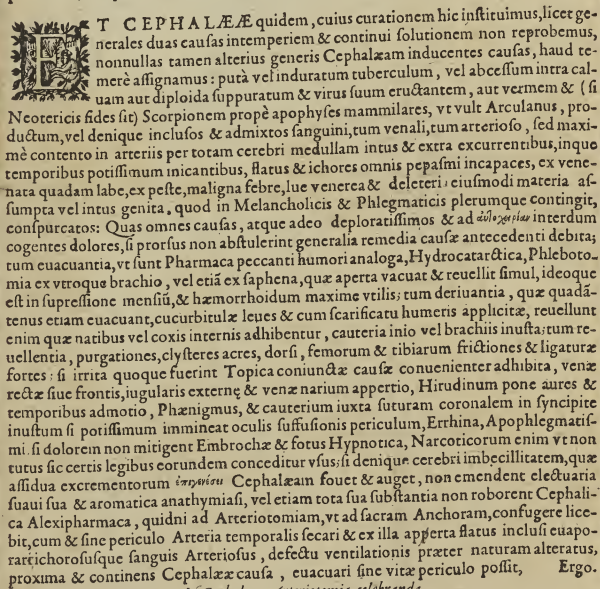 ET CEPHALÆÆ quidem, cuius curationem hic instituimus, licet ge-
nerales duas causas intemperiem & continui solutionem non reprobemus,
nonnullas tamen alterius generis Cephalæam inducentes causas, haud te-
merè assignamus: putà vel induratum tuberculum, vel abcessum intra cal-
uam aut diploida suppuratum & virus suum eructantem, aut vermem & (si
Neotericis fides sit) Scorpionem propè apophyses mammilares, vt vult Arculanus, pro-
ductum, vel denique inclusos & admixtos sanguini, tum venali, tum arterioso, sed maxi-
mè contento in arteriis per totam cerebri medullam intus & extra excurrentibus, inque
temporibus potissimum micantibus, flatus & ichores omnis pepasmi incapaces, ex vene-
nata quadam labe, ex peste, maligna febre, lue venerea & deleteri, eiusmodi materia as-
sumpta vel intus genita, quod in Melancholicis & Phlegmaticis plerumque contingit,
conspurcatos: Quas omnes causas, atque adeo deploratissimos & ad αὐτοχειρίαν interdum
cogentes dolores, si prorsus non abstulerint generalia remedia causæ antecedenti debita;
tum euacuantia, vt sunt Pharmaca peccanti humori analoga, Hydrocatarctica, Phleboto-
mia ex vtroque brachio, vel etiã ex saphena, quæ aperta vacuat & reuellit simul, ideoque
est in supressione mensiũ, & hæmorrhoidum maxime vtilis; tum deriuantia, quæ quadã-
tenus etiam euacuant, cucurbitulæ leues & cum scarificatu humeris applicitæ, reuellunt
enim quæ natibus vel coxis internis adhibentur, cauteria inio vel brachiis inusta; tum re-
uellentia, purgationes, clysteres acres, dorsi, femorum & tibiarum frictiones & ligaturæ
fortes: si irrita quoque fuerint Topica coniunctæ causæ conuenienter adhibita, venæ
rectæ siue frontis, iugularis externę & venæ narium appertio, Hirudinum pone aures &
temporibus admotio, Phænigmus, & cauterium iuxta suturam coronalem in syncipite
inustum si potissimum immineat oculis suffusionis periculum, Errhina, Apophlegmatis-
mi. si dolorem non mitigent Embrochæ & fotus Hypnotica, Narcoticorum enim vt non
tutus sic certis legibus eorundem conceditur vsus; si denique cerebri imbecillitatem, quæ
assidua excrementorum Cephalæam fouet & auget, non emendent electuaria
suaui sua & aromatica anathymiasi, vel etiam tota sua substantia non roborent Cephali-
ca Alexipharmaca, quidni ad Arteriotomiam, vt ad sacram Anchoram, confugere lice-
bit, cum & sine periculo Arteria temporalis secari & ex illa apperta flatus inclusi euapo-
rari, ichorosusque sanguis Arteriosus, defectu ventilationis præter naturam alteratus,
proxima & continens Cephalææ causa, euacuari sine vitæ periculo possit, Ergo.